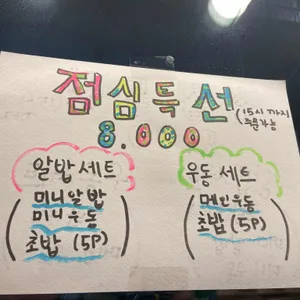 점심특선
(15시까지
주문가능
8.000
알밥세트
미니알밥
미니우동
초밥 (5P)
우동세트
메인우동
초밥 (5P)